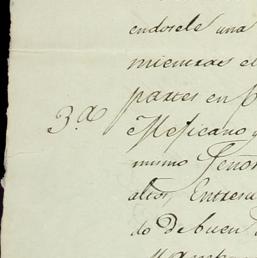 endosele una
mientras el
partes en
3.a Mejicano y
mismo Señor
altos, Entresu
do de buen